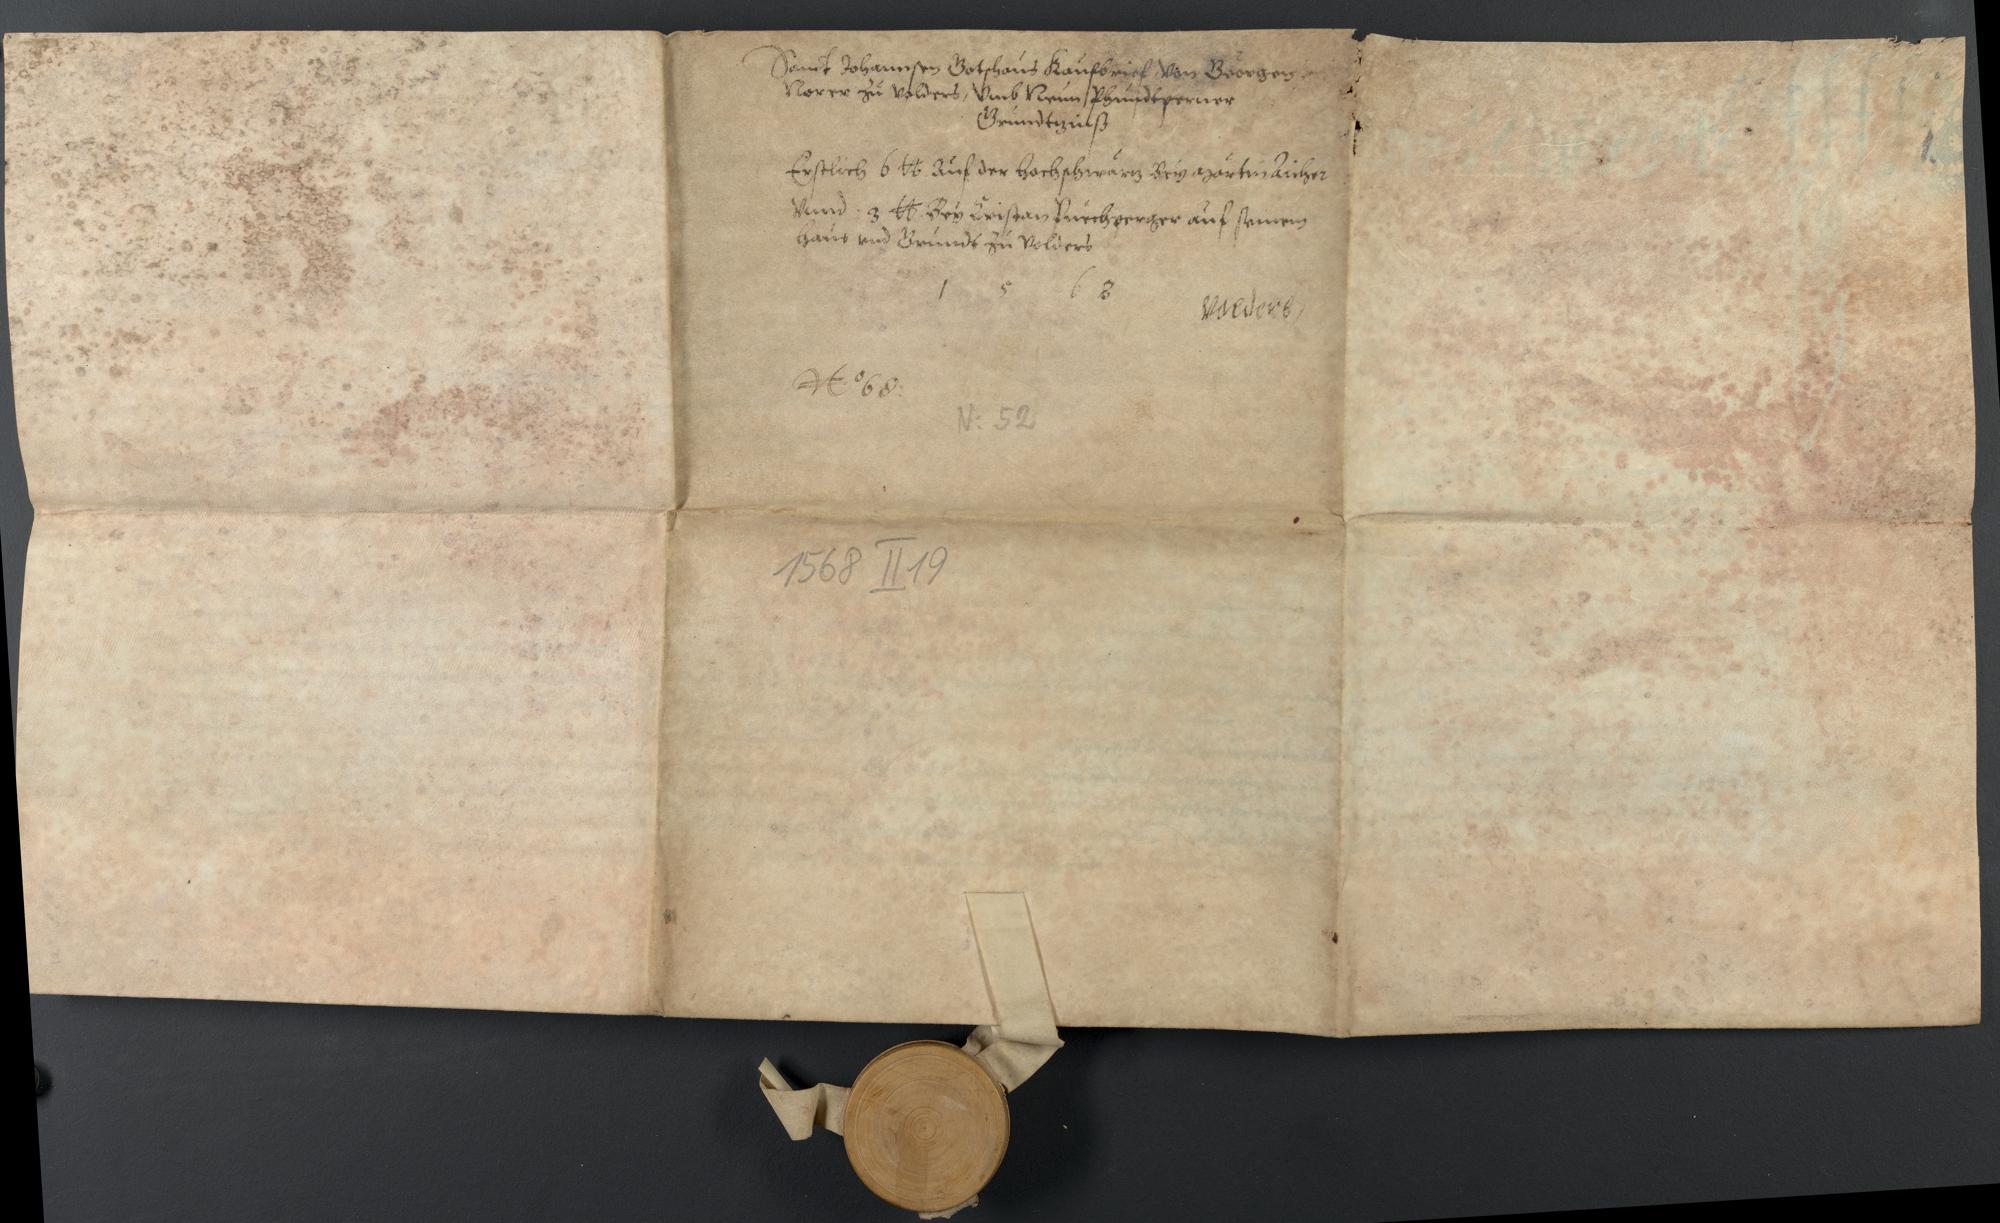 Sanct Johannsen Gotshaus Kaufbrief Von Geörgen
Norer zu Volders, Vmb Neun Phundtperner
Grundtzinß
Erstlich 6 ℔ Auf der Hochschwarz Bey Martin Aicher
Vnnd 3 ℔ Bey Cristan Puechperger auf seinem
Haus vnd Grundt zu Volders
1 5 6 8
Volders
No 68.
N: 52
1568 II 19
1.